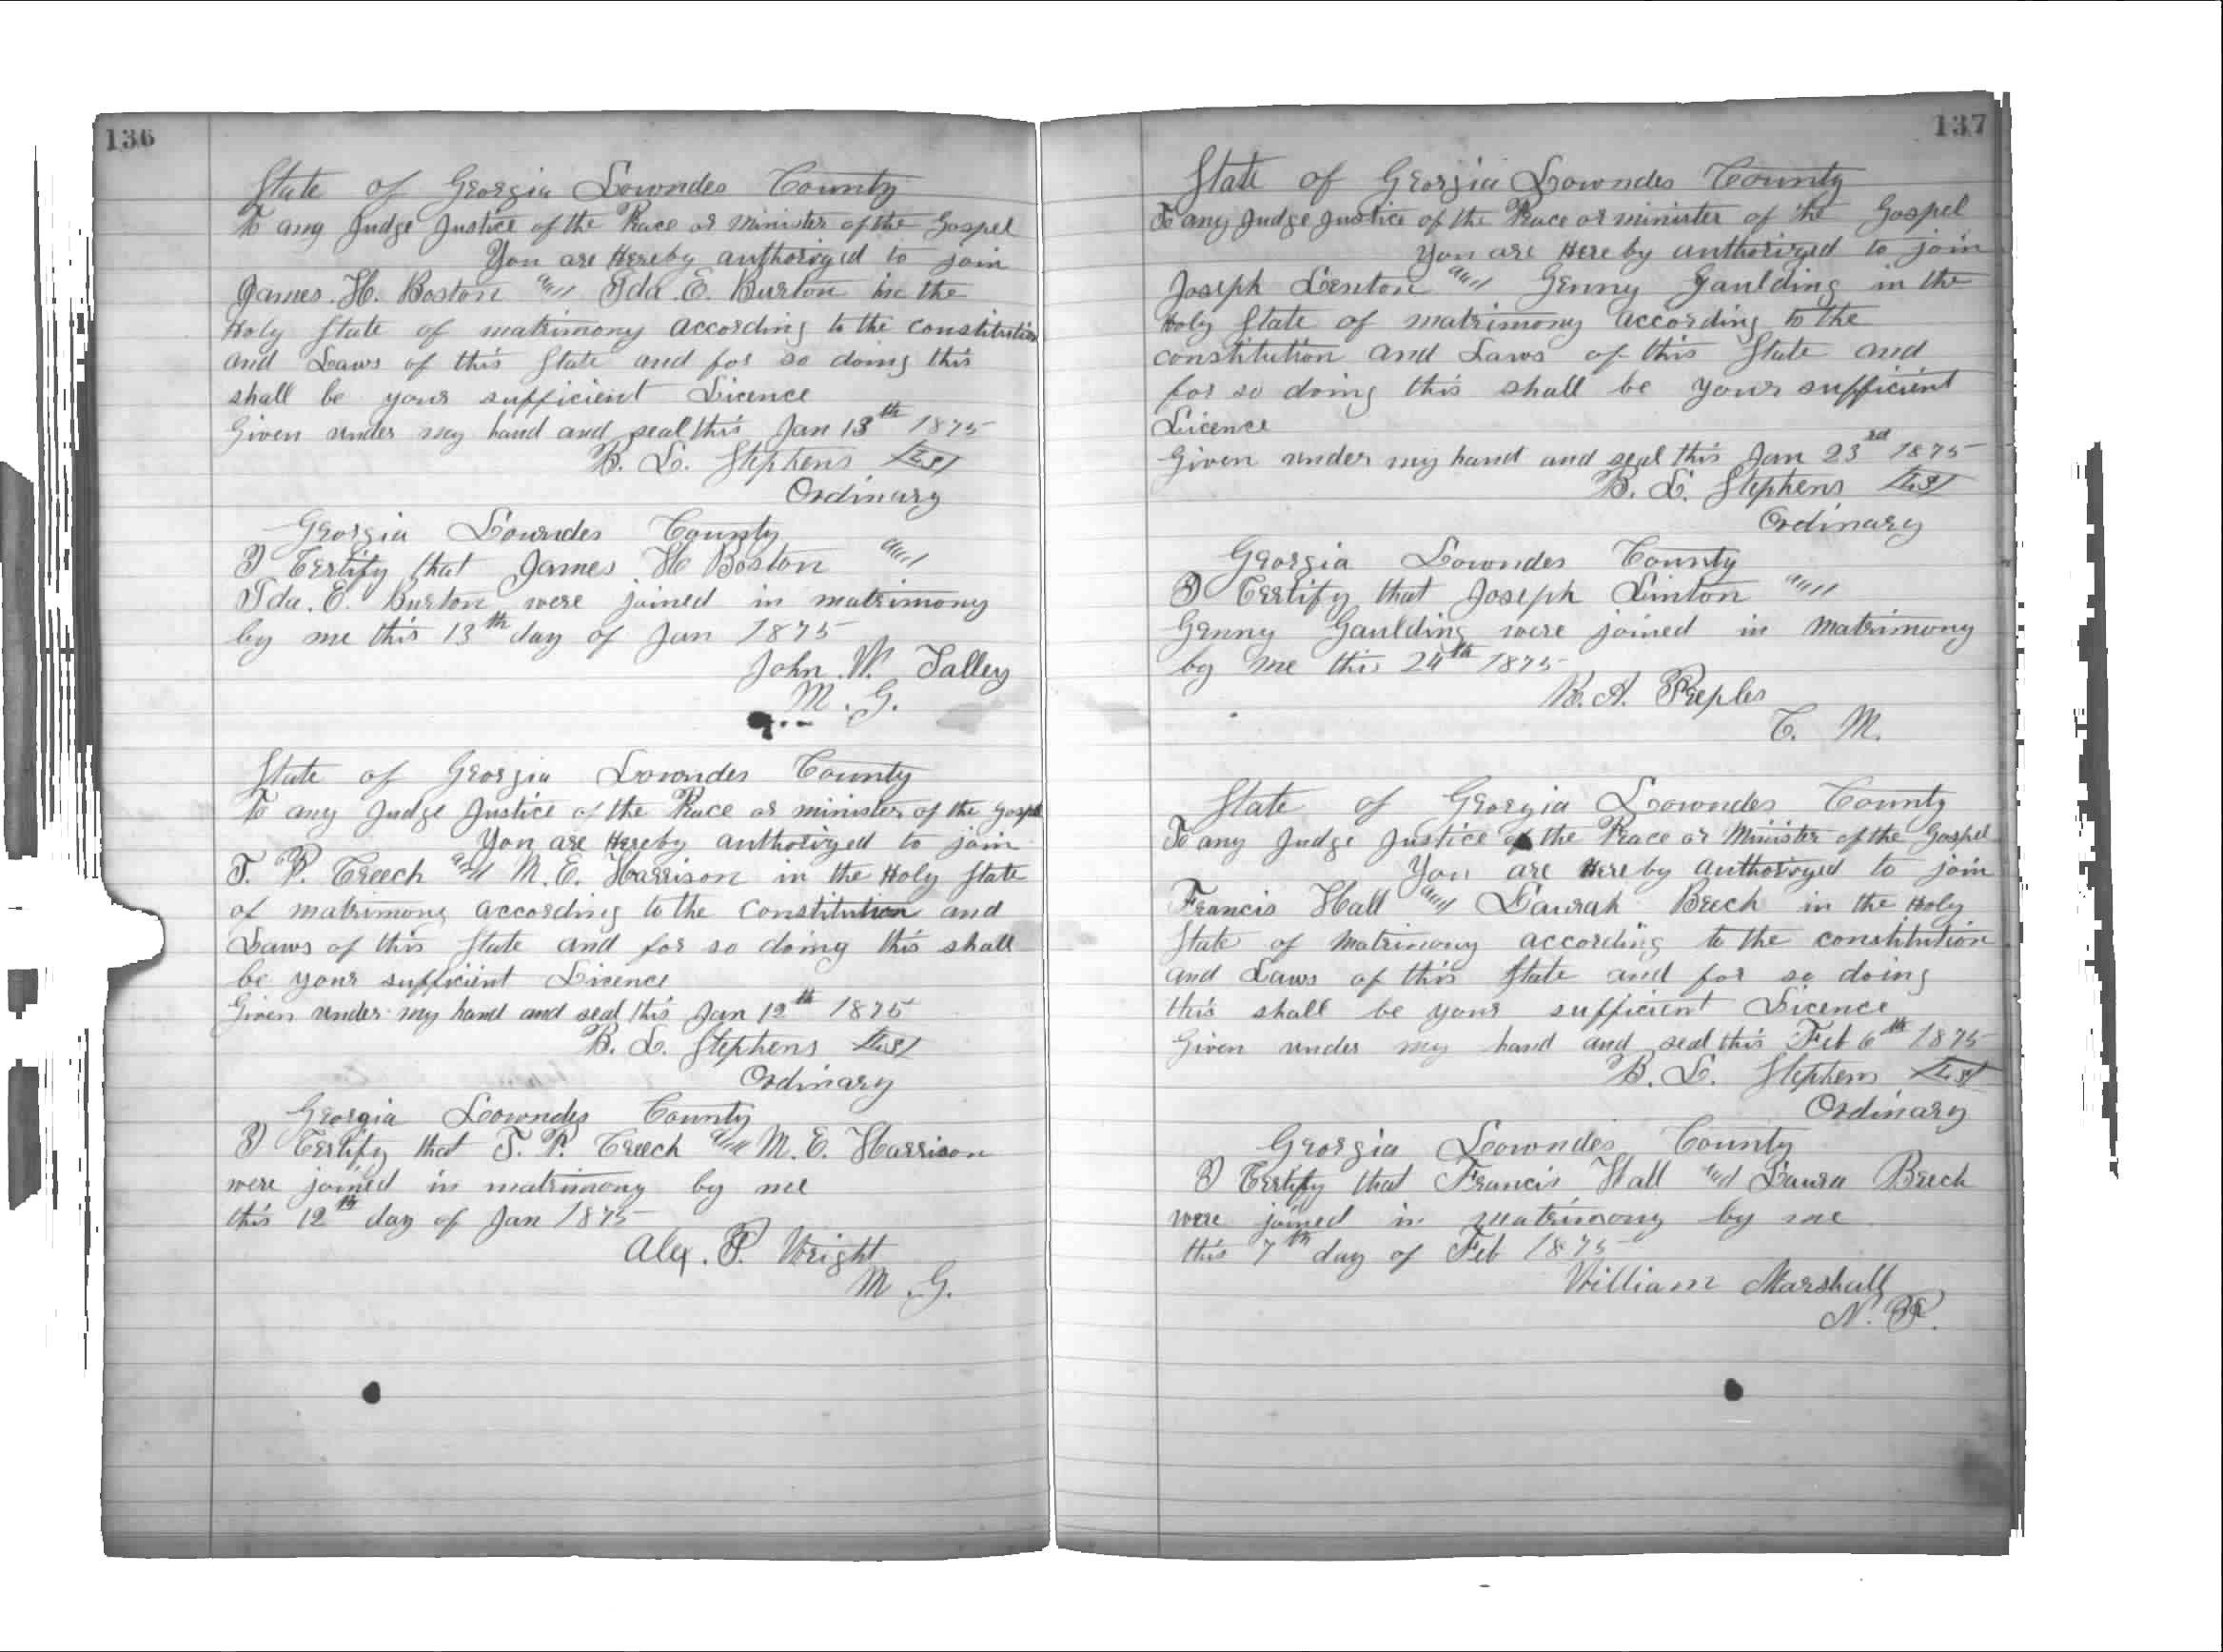 136
State of Georgia Lowndes County
To any Judge Justice of the Peace or Minister of the Gospel
You are Hereby authorized to join
James. H. Boston and Ida. E. Burton in the
Holy State of matrimony according to the constitution
and Laws of this State and for so doing this
shall be your sufficient Licence
Given under my hand and seal this Jan 13th 1875
B. L. Stephens L.S.
Ordinary
Georgia Lowndes County
I Certify that James H Boston and
Ida. E. Burton were joined in matrimony
by me this 13th day of Jan 1875
John. W. Talley
M. G.
State of Georgia Lowndes County
To any Judge Justice of the Peace or minister of the Gospel
You are Hereby authorized to join
T. P. Creech and M. E. Harrison in the Holy State
of matrimony according to the Constitution and
Laws of this State and for so doing this shall
be your sufficient Licence
Given under my hand and seal this Jan 12th 1875
B. L. Stephens L.S.
Ordinary
Georgia Lowndes County
I Certify that T. P. Creech and M. E. Harrison
were joined in matrimony by me
this 12th day of Jan 1875
Alex. P. Wright
M. G.
137
State of Georgia Lowndes County
To any Judge Justice of the Peace or minister of the Gospel
You are Hereby authorized to join
Joseph Lenton and Genny Gaulding in the
Holy State of matrimony according to the
constitution and Laws of this State and
for so doing this shall be your sufficient
Licence
Given under my hand and seal this Jan 23rd 1875
B. L. Stephens L.S.
Ordinary
Georgia Lowndes County
I Certify that Joseph Linton and
Genny Gaulding were joined in Matrimony
by me this 24th 1875
R. A. Peeples
C. M.
State of Georgia Lowndes County
To any Judge Justice of the Peace or Minister of the Gospel
You are Hereby authorized to join
Francis Hall and Laurah Beech in the Holy
State of Matrimony according to the constitution
and Laws of this State and for so doing
this shall be your sufficient Licence
Given under my hand and seal this Feb 6th 1875
B. L. Stephens L.S.
Ordinary
Georgia Lowndes County
I Certify that Francis Hall and Laura Beech
were joined in matrimony by me
this 7th day of Feb 1875
William Marshall
N. P.